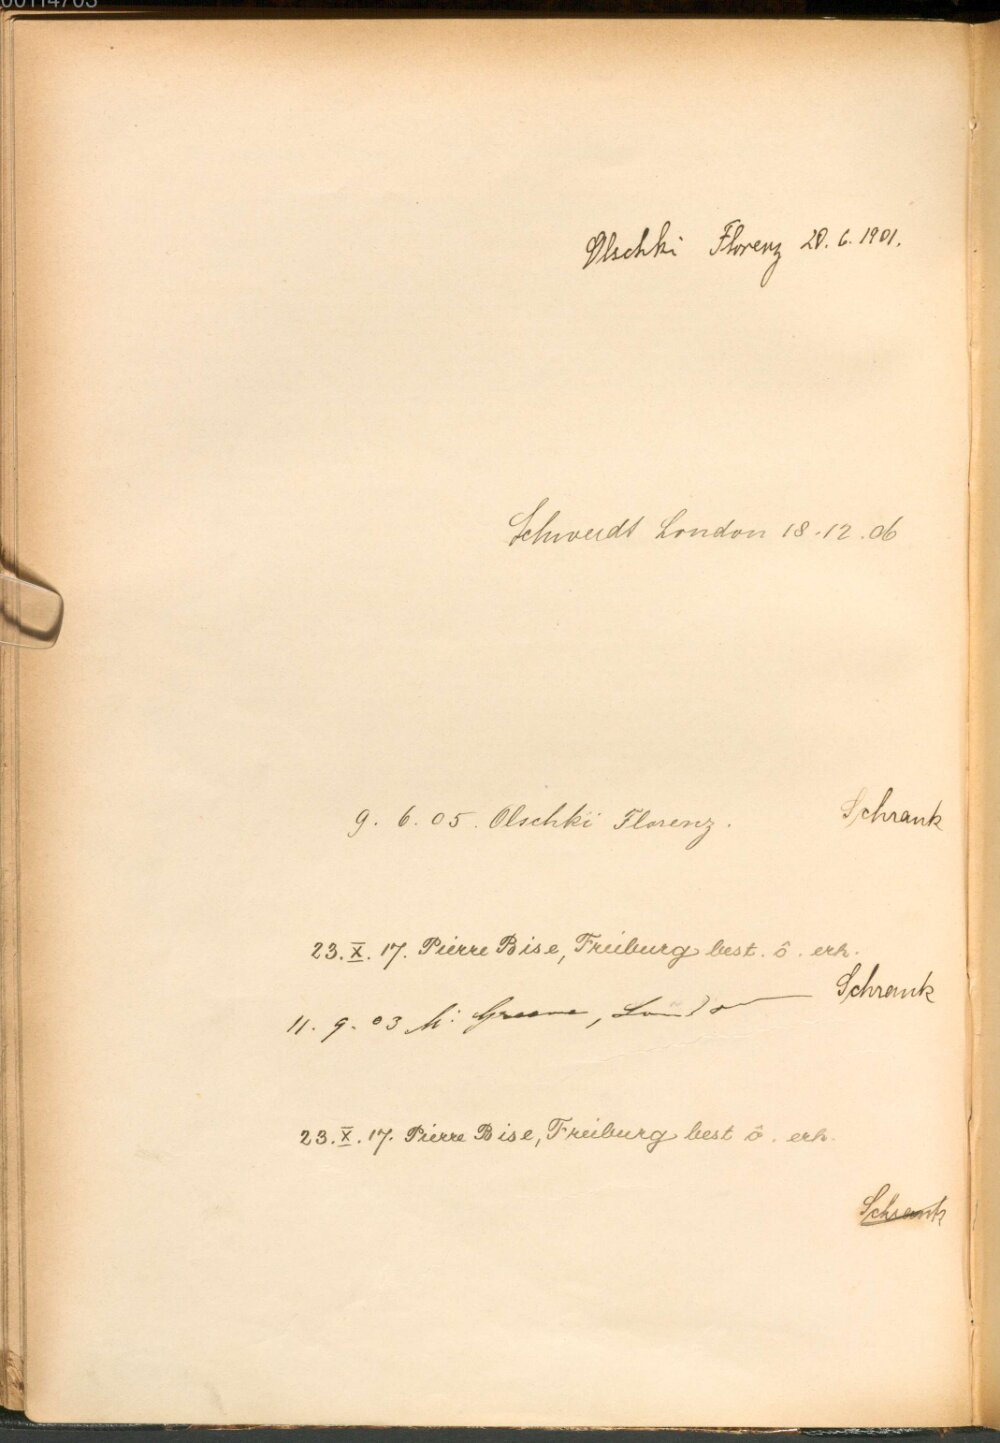 00114703
Olschki Florenz 20. 6. 1901.
Schwerdt London 18.12.06
9. 6. 05. Olschki Florenz.
Schrank
23. X. 17. Pierre Bise, Freiburg best. ô. erh.
Schrank
11. 9. 03 Greene, London
23. X. 17. Pierre Bise, Freiburg best ô. erh.
Schrank